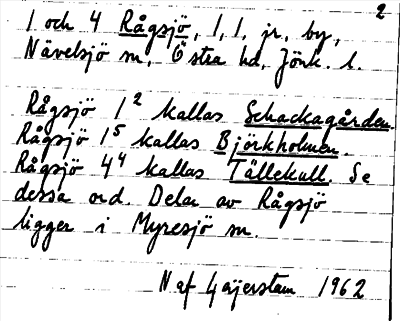 2
1 och 4 Rågsjö, 1, 1. jr, by,
Nävelsjö sn, Östra hd, Jönk. l.
Rågsjö 1² kallas Schackagården.
Rågsjö 1⁵ kallas Björkholmen.
Rågsjö 4⁴ kallas Tällekull. Se
dessa ord. Delar av Rågsjö
ligger i Myresjö sn.
N af Gaijerstam 1962